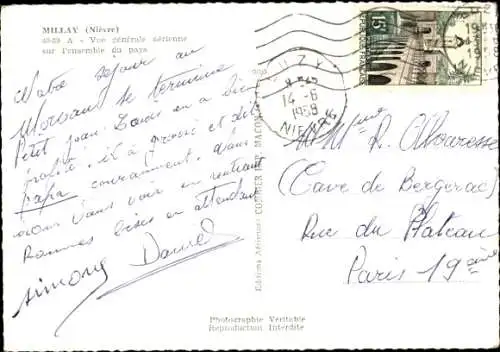 MILLAY (Nièvre)
49-69 A - Vue générale aérienne
sur l'ensemble du pays
Notre séjour au
Morvan se termine
Petit Jean Louis en a bien
profité, il a grossi et dit
papa couramment. Nous
irons vous voir en rentrant
Bonnes bises en attendant
Simone Daniel
Editions Aériennes COMBIER IMP. MACON
LUZY
14-6
1958
NIEVRE
15F
Mme R. Alvaresse
(Cave de Bergerac)
Rue du Plateau
Paris 19ème
Photographie Véritable
Reproduction Interdite